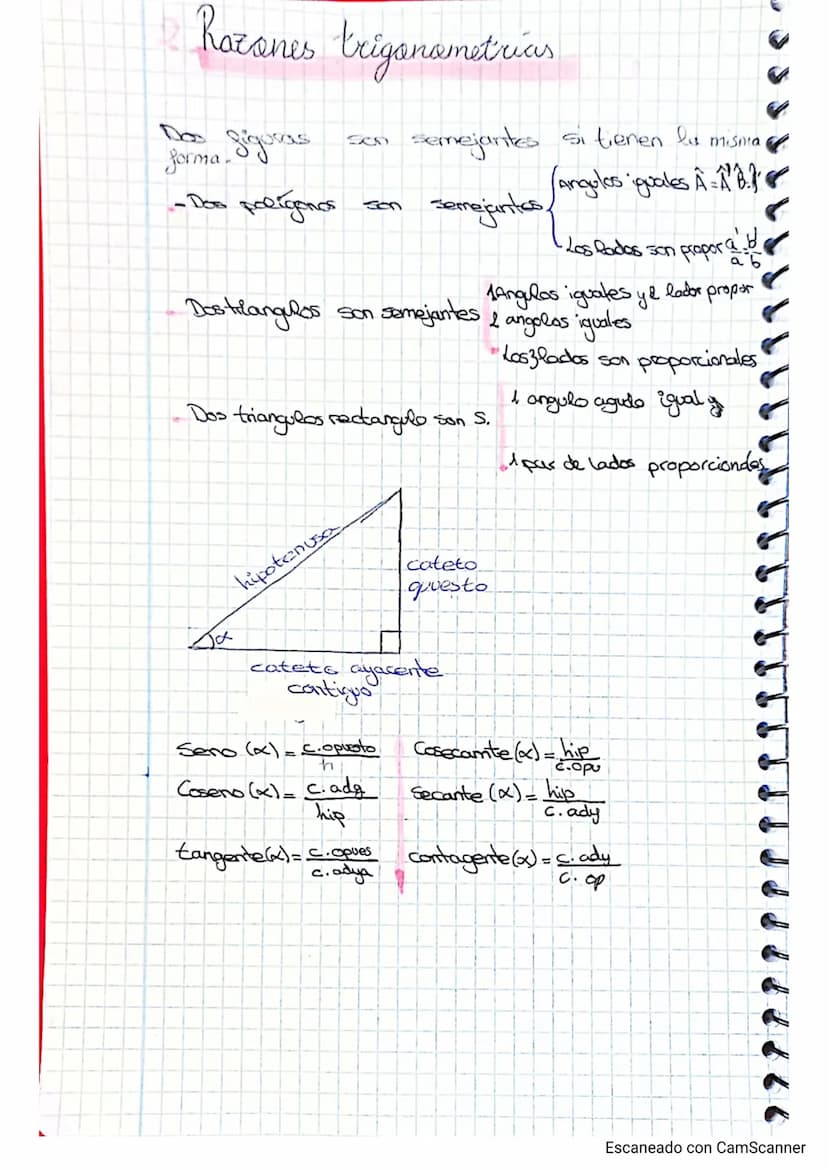 Razones trigonometrias
Dos figuras son semejantes si tienen la misma
forma.
- Dos polígonos son semejantes
Angulos iguales Â=Â' B̂.
Los lados son propor a'/a b'/b
- Dos triangulos son semejantes
1 Angulos iguales y 2 lador propor
2 angolos iguales
Los 3 lados son proporcionales
- Dos triangulos rectangulo son S.
1 angulo agudo igual y
1 par de lados proporciondes
hipotenusa
cateto
opuesto
α
cateto ayacente
contiguo
Seno (α) = c.opuesto/h
Cosecamte (α) = hip/c.opu
Coseno (α) = c. ady/hip
Secante (α) = hip/c. ady
tangente (α) = c.opues/c.adya
contagente (α) = c. ady/c. op
Escaneado con CamScanner